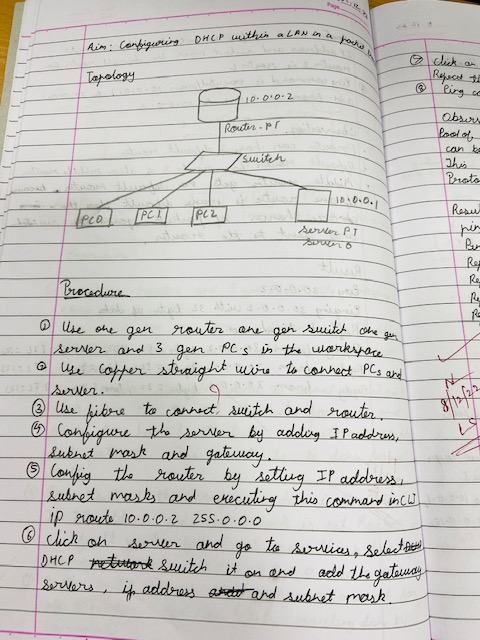 Aim: Configuring DHCP within a LAN in a
Topology
10.0.0.2
Router-PT
Switch
PC0
PC1
PC2
10.0.0.1
Server PT
Server 0
Procedure
① Use one gen router one gen switch one gen
server and 3 gen PCs in the workspace
② Use copper straight wire to connect PCs and
server.
③ Use fibre to connect switch and router.
④ Configure the server by adding IP address,
subnet mask and gateway.
⑤ Config the router by setting IP address,
subnet masks and executing this command in CLI
ip route 10.0.0.2 255.0.0.0
⑥ Click on server and go to services, select
DHCP network switch it on and add the gateway
servers, ip address and and subnet mask.
⑦ Click on
Repeat th
⑧ Ping co
Obser
Pool of
can be
This
Proto
Resul
pin
Re
Re
Re